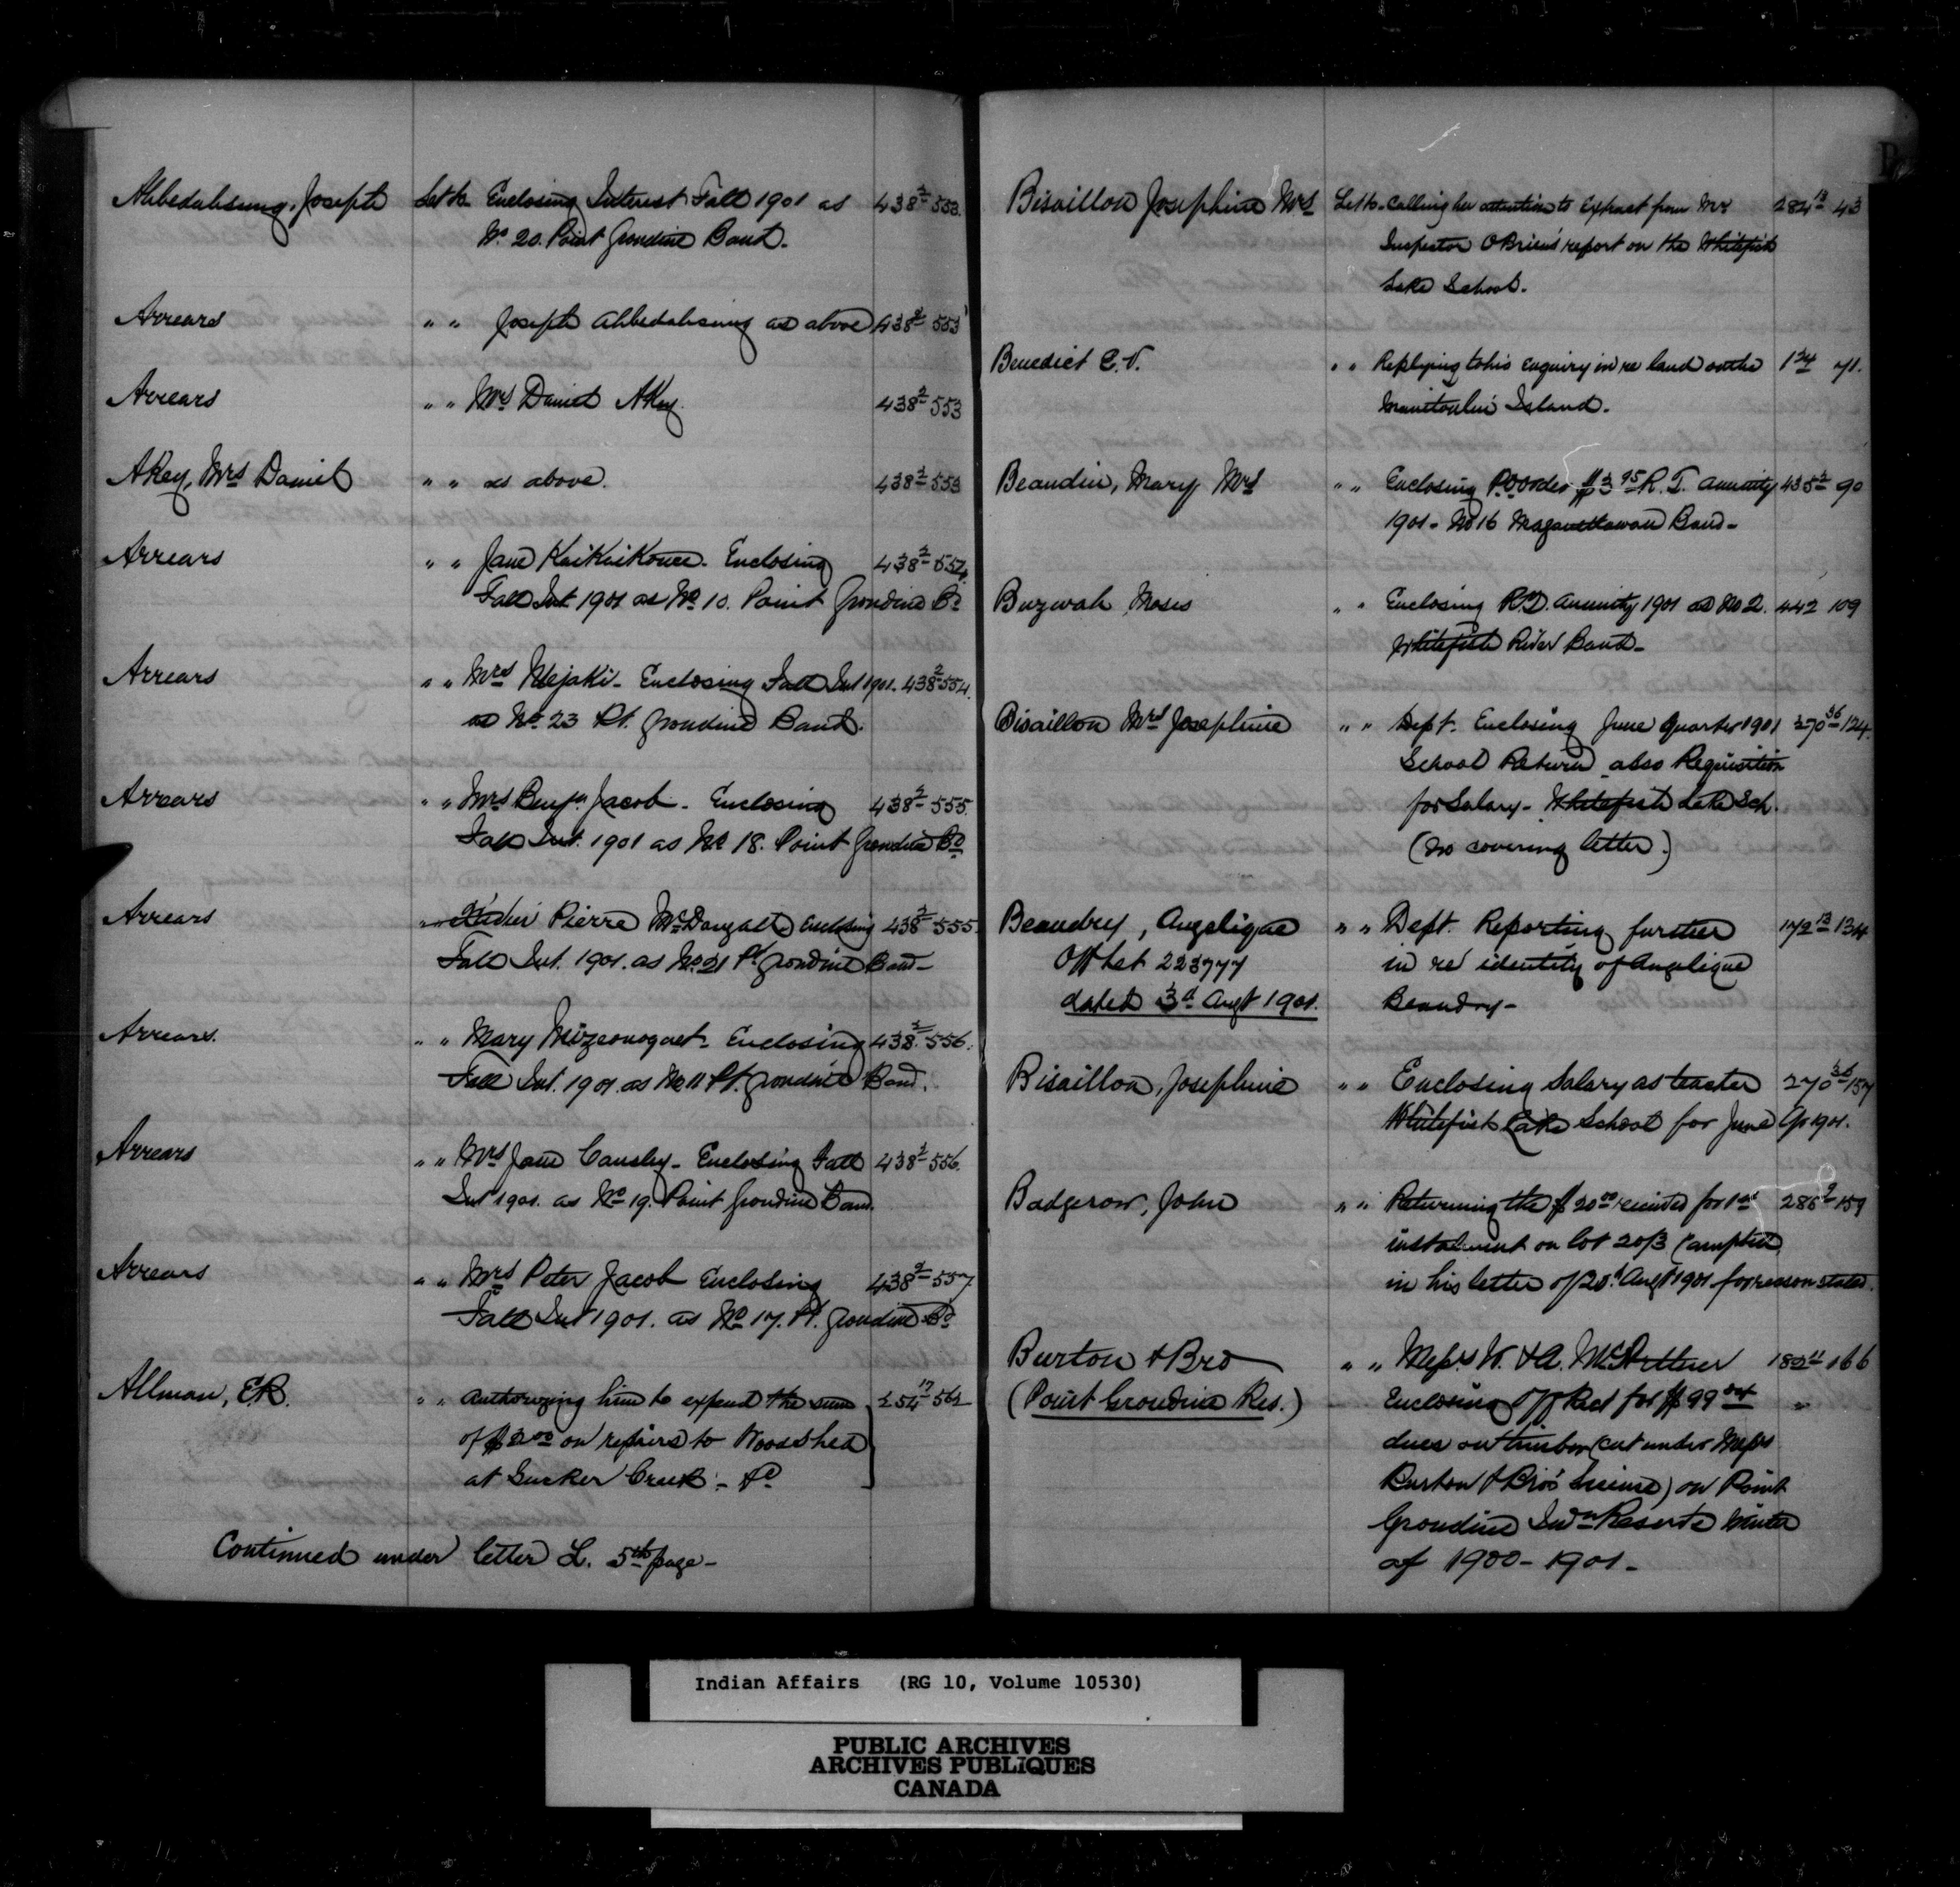 Ahbedahsung, Joseph Let to Enclosing Interest Fall 1901 as 438² 553
No 20. Point Grondine Band.
Arrears " " Joseph Ahbedahsung as above 438² 553
Arrears " " Mrs Daniel AKey. 438² 553
AKey, Mrs Daniel " " as above. 438² 553
Arrears " " Jane KaiKaiKouce. Enclosing 438² 554
Fall Int 1901 as No 10. Point Grondine Bd
Arrears " " Mrs Mejaki - Enclosing Fall Int 1901. 438² 554.
as No 23 Pt. Grondine Band.
Arrears " " Mrs Benjn Jacob - Enclosing 438² 555.
Fall Int. 1901 as No 18. Point Grondine Bd
Arrears " Pierre McDougall Enclosing 438² 555.
Fall Int. 1901. as No 21 Pt Grondine Band -
Arrears. " " Mary Mizeonoquet - Enclosing 438² 556.
Fall Int. 1901. as No 11 Pt. Grondine Band.
Arrears " " Mrs Jane Causley - Enclosing Fall 438² 556.
Int 1901. as No 19. Point Grondine Band.
Arrears " " Mrs Peter Jacob Enclosing 438² 557
Fall Int 1901. as No 17. Pt. Grondine Bd
Allman, E.R. " " Authorizing him to expend the sum 254¹⁷ 562
of $2.00 on repairs to Woodshed
at Sucker Creek - &c
Continued under letter L. 5th page -
B
Bisaillon Josephine Mrs Let to - Calling her attention to Extract from Mr 284¹³ 43
Inspector O'Brien's report on the Whitefish
Lake School.
Benedict C.V. " " Replying to his enquiry in re land on the 1²⁴ 71.
Manitoulin Island.
Beaudin, Mary Mrs " " Enclosing P.O. Order $3.95 R.T. annuity 435² 90
1901 - No 16 Maganettawan Band -
Buzwah Moses " " Enclosing R.T. annuity 1901 as No 2. 442 109
Whitefish River Band -
Bisaillon Mrs Josephine " " Dept. Enclosing June Quarter 1901 270³⁶ 124.
School Return also Requisition
for Salary - Whitefish Lake Sch.
(no covering letter.)
Beaudry, Angelique " " Dept. Reporting further 172¹³ 134
Off Let 223777 in re identity of Angelique
dated 3d Augt 1901. Beaudry -
Bisaillon, Josephine " " Enclosing Salary as teacher 270³⁶ 157
Whitefish Lake School for June Qr 1901.
Badgerow, John " " Returning the $20.00 received for 1st 286⁹ 159
instalment on lot 20/3 Campbell
in his letter of 20th Augt 1901 for reason stated.
Burton & Bro " " Messrs W. & A. McArthur 182¹¹ 166
(Point Grondine Res.) Enclosing Off Rect for $99 "
dues on timber (cut under Messrs
Burton & Bro's license) on Point
Grondine Indn Reserve Winter
of 1900 - 1901 -
Indian Affairs (RG 10, Volume 10530)
PUBLIC ARCHIVES
ARCHIVES PUBLIQUES
CANADA